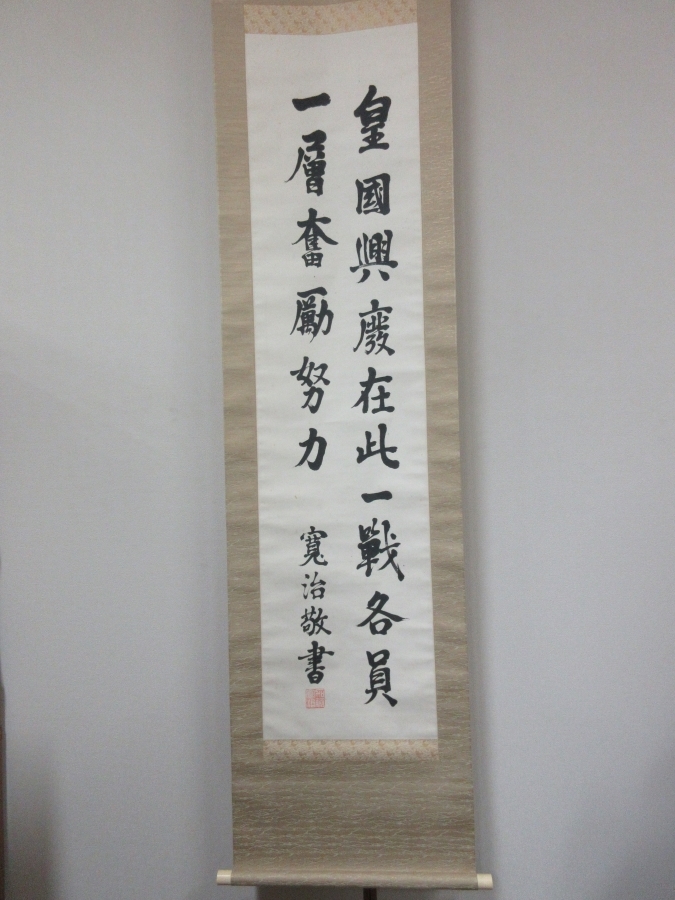 皇國興廢在此一戰各員
一層奮勵努力
寬治敬書